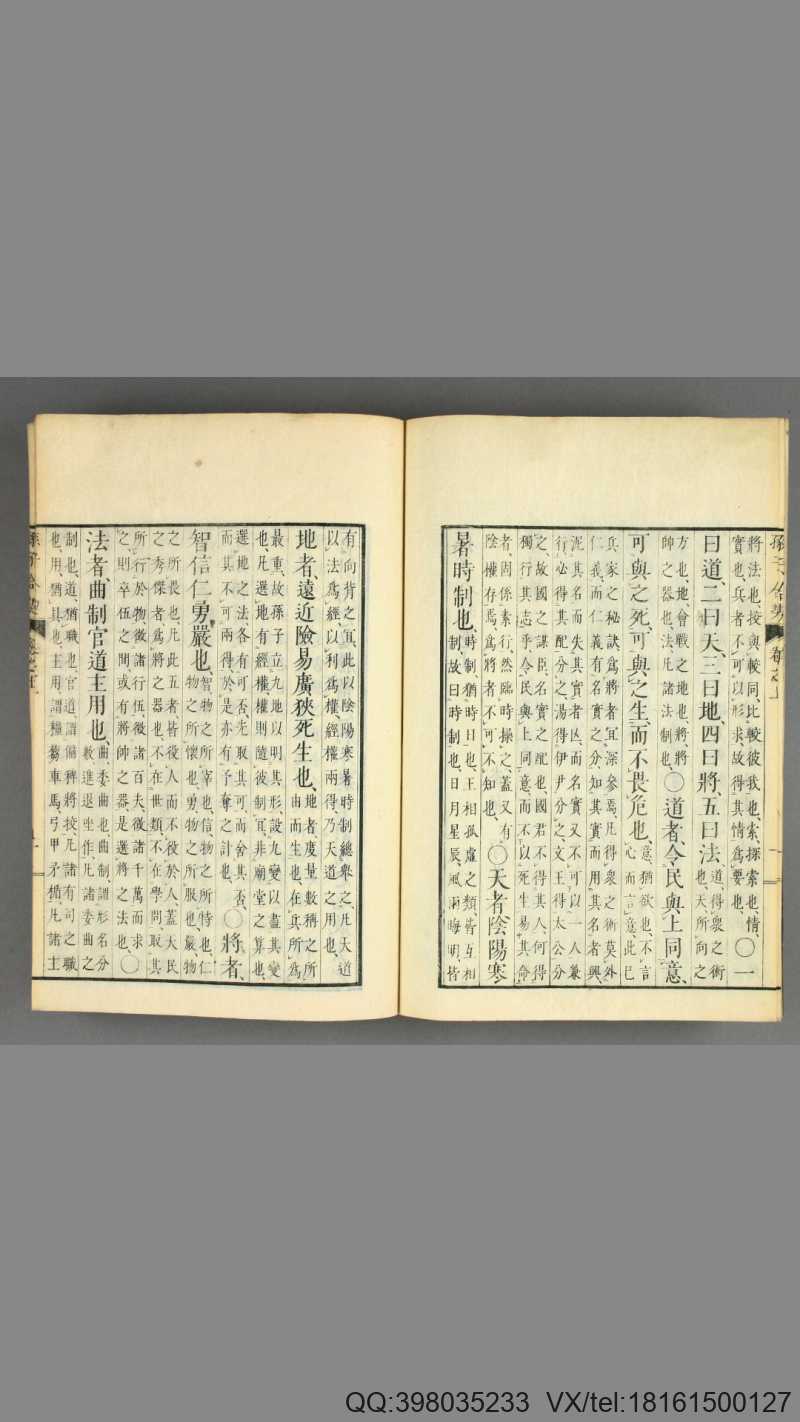 將法也、挍與較同、比較彼我也、索、探索也、情、
實也、兵者不可以形求、故得其情爲要也、〇一
曰道、二曰天、三曰地、四曰將、五曰法、道、得衆之術
也、天、所向之
方也、地、會戰之地也、將、將
帥之器也、法、凡諸法制也、〇道者、令民與上同意、
可與之死、可與之生、而不畏危也、意、猶欲也、不言
心而言意、此已
兵家之秘訣、爲將者宜深參焉、凡得衆之術、莫外
仁義、而仁義有名實之分、知其實而用其名者興、
泥其名而失其實者亡、而名實又不可以一人兼
行、必得其配分之、湯得伊尹分之、文王得太公分
之、故國之謀臣、名實之配也、國君不得其人、何得
獨行其志乎、令民與上同意、而不以死生易其命
者、固係素行、然臨時操之、蓋又有
陰權存焉、爲將者不可不知也、〇天者、陰陽寒
暑時制也、時制、猶時日也、王相孤虛之類、皆互相
制、故曰時制也、日月星辰、風雨晦明、皆
有向背之宜、此以陰陽寒暑時制總舉之、凡天道
以法爲經、以利爲權、經權兩得、乃天道之用也、
地者、遠近險易廣狹死生也、地者、度量數稱之所
由而生也、在兵所爲
最重、故孫子立九地以明其形、設九變以盡其變
也、凡選地有經權、權則隨彼制宜、非廟堂之算也、
選地之法各有可否、先取其可、而舍其否、
而其不可兩得、於是亦有予奪之計也、〇將者、
智信仁勇嚴也、智、物之所宰也、信、物之所恃也、仁
物之所懷也、勇、物之所服也、嚴、物
之所畏也、凡此五者皆役人而不役於人、蓋天民
之秀傑者、爲將之器也、不在世類、不在學問、取其
所行於物、徵諸行伍、徵諸百夫、徵諸千萬、而求
之、則卒伍之間、或有將帥之器、是選將之法也、〇
法者、曲制官道主用也、曲、委曲也、曲制、謂形名分
數進退坐作、凡諸委曲之
制也、道、猶職也、官道、謂偏裨將挍、凡諸有司之職
也、用、猶具也、主用、謂糧蒭車馬、弓甲矛楯、凡諸主
QQ:398035233  VX/tel:18161500127